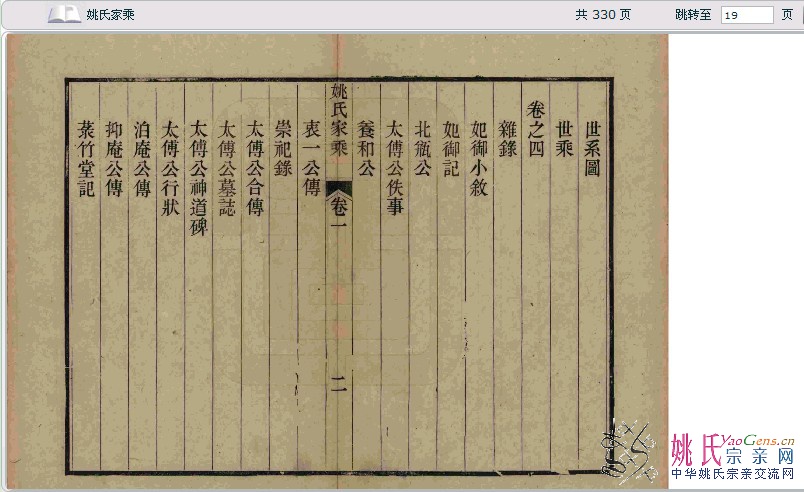 姚氏家乘
共 330 页
跳转至 19 页
世系圖
世乘
卷之四
雜錄
妃御小敘
妃御記
北瓶公
太傅公佚事
養和公
姚氏家乘
卷一
二
衷一公傳
崇祀錄
太傅公合傳
太傅公墓誌
太傅公神道碑
太傅公行狀
泊庵公傳
抑庵公傳
菉竹堂記
姚氏YaoGens.cn
宗亲网
中华姚氏宗亲交流网